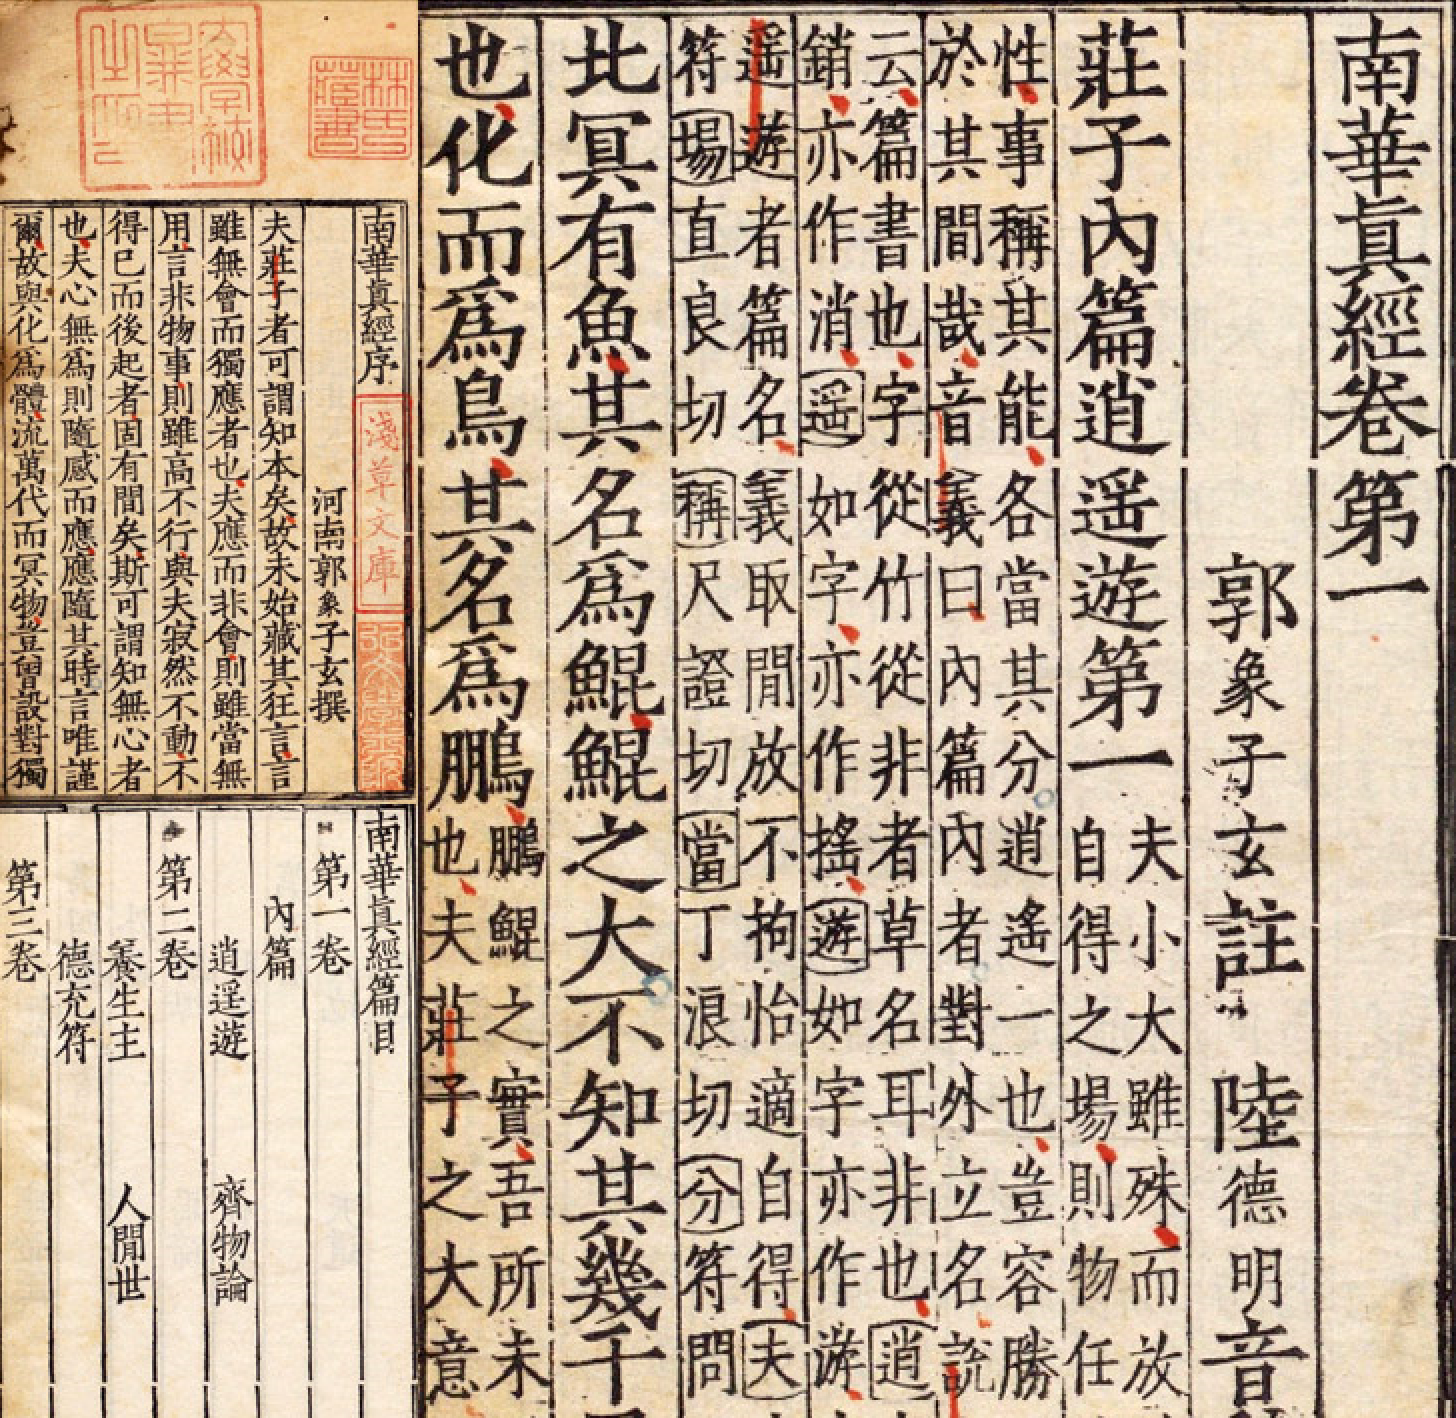 南華眞經卷第一
郭象子玄註 陸德明音
莊子內篇逍遥遊第一
夫小大雖殊而放
自得之場則物任
性事稱其能各當其分逍遙一也豈容勝
於其間哉音義曰內篇內者對外立名說
云篇書也字從竹從非者草名耳非也逍
銷亦作消遥如字亦作搖遊如字亦作游
遥遊者篇名義取閒放不拘怡適自得夫
符場直良切稱尺證切當丁浪切分符問
北冥有魚其名爲鯤鯤之大不知其幾千
也化而爲鳥其名爲鵬
鵬鯤之實吾所未
也夫莊子之大意
林氏藏書
南華眞經序
淺草文庫
河南郭象子玄撰
夫莊子者可謂知本矣故未始藏其狂言言
雖無會而獨應者也夫應而非會則雖當無
用言非物事則雖高不行與夫寂然不動不
得已而後起者固有間矣斯可謂知無心者
也夫心無爲則隨感而應應隨其時言唯謹
爾故與化爲體流萬代而冥物豈曾設對獨
南華眞經篇目
第一卷
內篇
逍遥遊 齊物論
第二卷
養生主 人閒世
德充符
第三卷